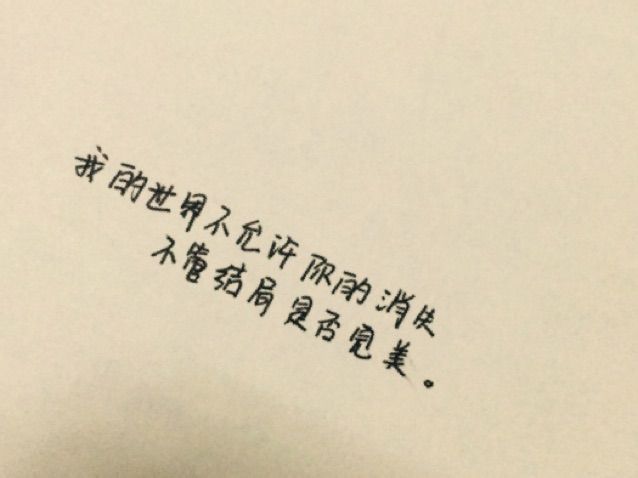 我的世界不允许你的消失
不管结局是否完美。